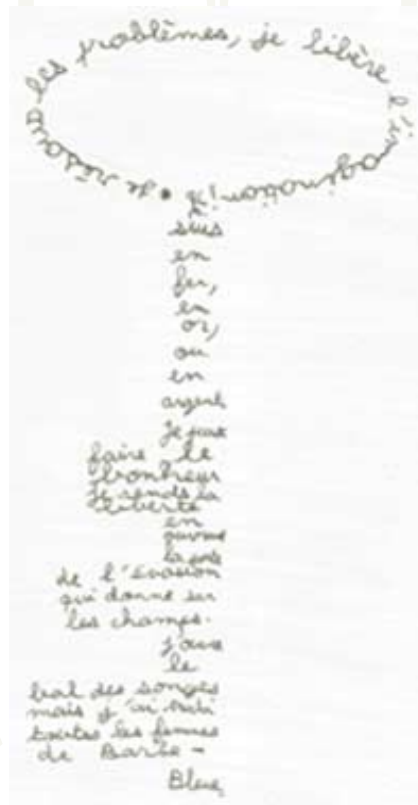 je résous les problèmes, je libère l'imagination!
Je
suis
en
fer,
en
or,
ou
en
argent
Je peux
faire le
bonheur
Je rends la
liberté
en
ouvrant
la porte
de l'évasion
qui donne sur
les champs.
j'ouvre
le
bal des songes
mais j'ai
toutes les femmes
de Barbe-
Bleue,